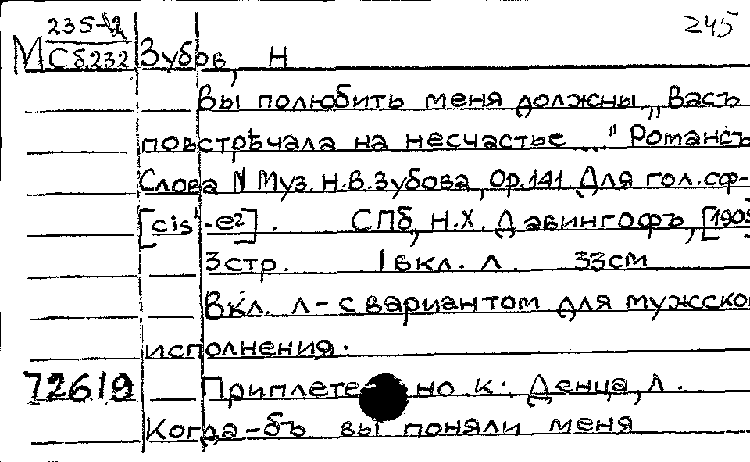 245
М 235-12
Сб.232 Зубов, Н
Вы полюбить меня должны „Васъ
повстрѣчала на несчастье ..." Романсъ
Слова И Муз. Н.В. Зубова, Op.141 Для гол. с ф-
[cis¹-e²]. СПб, Н.Х. Давингофъ, [190
3 стр. 1 вкл. л. 33 см
Вкл. л - с вариантом для мужско
исполнения.
72619 Приплете но к: Денца, Л.
Когда-бъ вы поняли меня